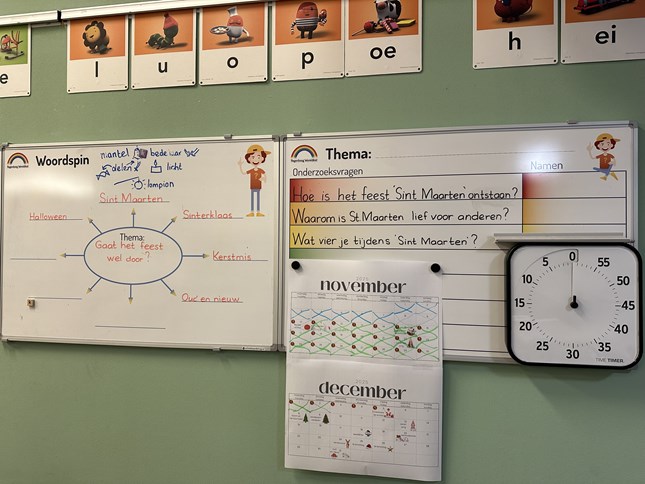 e
l
u
o
p
oe
h
ei
Woordspin
mantel
bedelaar
delen
licht
lampion
Sint Maarten
Halloween
Sinterklaas
Thema:
Gaat het feest
wel door?
Kerstmis
Oud en nieuw
Thema:
Onderzoeksvragen
Namen
Hoe is het feest 'Sint Maarten' ontstaan?
Waarom is St. Maarten lief voor anderen?
Wat vier je tijdens 'Sint Maarten'?
2025
november
2025
december
0
5
10
15
20
25
30
35
40
45
50
55
TIME TIMER